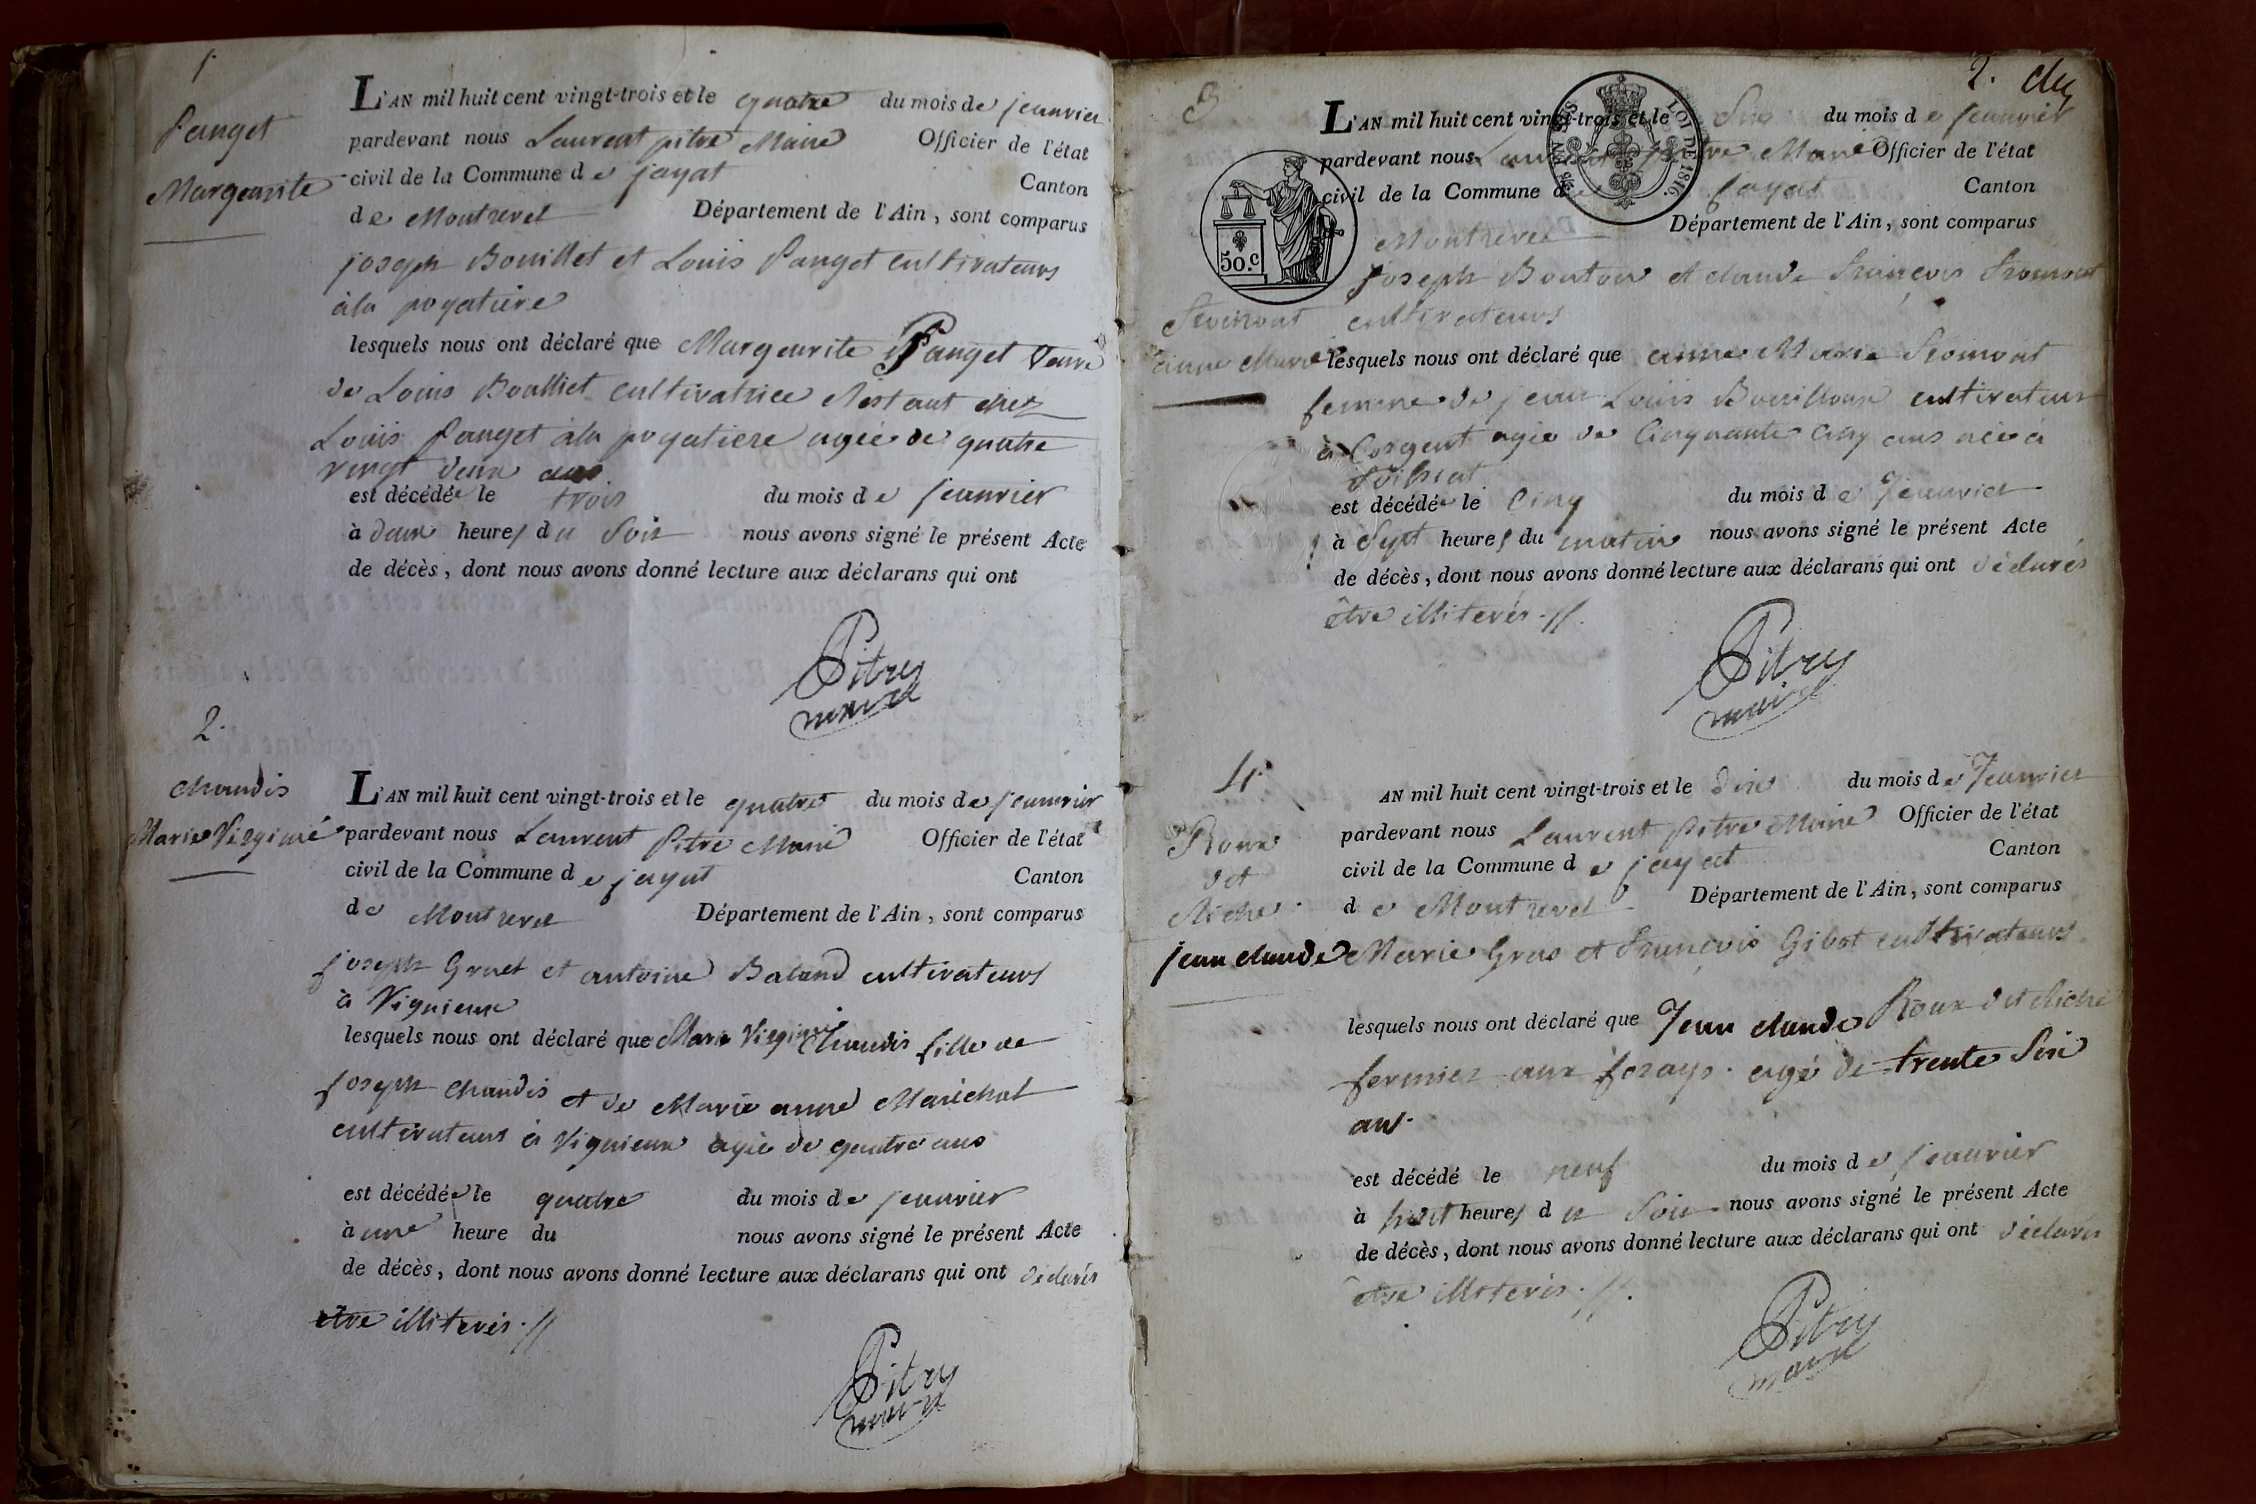 1.
Panget
Margeurite
L'AN mil huit cent vingt-trois et le quatre du mois de janvier
pardevant nous Laurent pitre Maire Officier de l'état
civil de la Commune de jayat Canton
de Montrevel Département de l'Ain, sont comparus
joseph Bouillet et Louis Panget cultivateurs
à la pogatiere
lesquels nous ont déclaré que Margeurite Panget Veuve
de Louis Boulliet cultivatrice Restant chez
Louis Panget àla pogatiere agée de quatre
vingt deux ans
est décédée le trois du mois de janvier
à deux heures du Soir nous avons signé le présent Acte
de décès, dont nous avons donné lecture aux déclarans qui ont
Pitre
maire
2.
chaudis
Marie Virginie
L'AN mil huit cent vingt-trois et le quatre du mois de janvier
pardevant nous Laurent Pitre Maire Officier de l'état
civil de la Commune de jayat Canton
de Montrevel Département de l'Ain, sont comparus
joseph Gruet et antoine Baland cultivateurs
à Vignieux
lesquels nous ont déclaré que Marie Virginie Chaudis fille de
joseph chaudis et de Marie anne Maréchal
cultivateurs à Vignieux agée de quatre ans
est décédée le quatre du mois de janvier
à une heure du nous avons signé le présent Acte
de décès, dont nous avons donné lecture aux déclarans qui ont déclarés
etre illiterés.//
Pitre
maire
2.
3
LOI DE 1816.
50.c
L'AN mil huit cent vingt-trois et le Six du mois de janvier
pardevant nous Laurent pitre Maire Officier de l'état
civil de la Commune de jayat Canton
Montrevel Département de l'Ain, sont comparus
joseph Bouton et claude François Fromont
cultivateurs
anne Marie
lesquels nous ont déclaré que anne Marie Fromont
femme de jean Louis Bouilloux cultivateur
à Corgent agée de Cinquante Cinq ans née à
Foissiat
est décédée le Cinq du mois de Janvier
à Sept heures du matin nous avons signé le présent Acte
de décès, dont nous avons donné lecture aux déclarans qui ont déclarés
être illiterés.//.
Pitre
maire
4
Roux
dit
Riche
jean claude
AN mil huit cent vingt-trois et le dix du mois de Janvier
pardevant nous Laurent Pitre Maire Officier de l'état
civil de la Commune de jayat Canton
de Montrevel Département de l'Ain, sont comparus
Marie Gras et François Gibot cultivateurs
lesquels nous ont déclaré que Jean claude Roux dit Riche
fermier aux forays. agé de trente Six
ans.
est décédé le neuf du mois de janvier
à huit heures du Soir nous avons signé le présent Acte
de décès, dont nous avons donné lecture aux déclarans qui ont déclarés
etre illiterés.//.
Pitre
maire